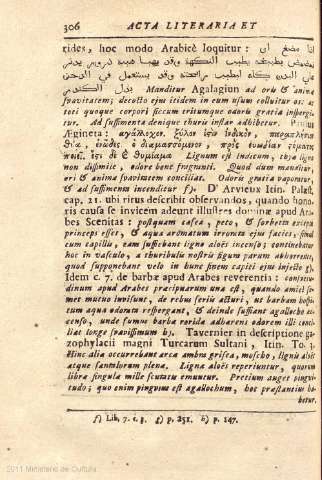 306 ACTA LITERARIA ET
rides, hoc modo Arabicè loquitur: اذا مضغ او
تمضمض بطبيخه يطيب النكهة وقد يهيا منه
علي البدن كله لطيب رائحته وقد يستعمل في الدخن
بدل الكندر Manditur Agalagiun ad oris & anima
suavitatem; decocto ejus itidem in eum usum colluitur os: a
toti quoque corpori siccum tritumque aureis gratia inspergi-
tur. Ad suffimenta denique thuris instar adhibetur. Paulus
Ægineta: ἀγάλλοχον, ξύλον ἐςὶν ἰνδικὸν,
θυίᾳ, εὐῶδες ὃ διαμασσόμενον, πρὸς εὐωδίαν ςόματος
ποιεῖ. ἔςι δὲ & θυμίαμα Lignum est indicum, thya ligno
non dissimile, odore bono fragranti. Quod dum manditur,
ori & anima suavitatem conciliat. Odoris gratia vaporatur,
& ad suffimenta incenditur f). D' Arvieux Itin. Palæst.
cap. 21. ubi ritus describit observandos, quando hono-
ris causa se invicem adeunt illustres dominæ apud Ara-
bes Scenitas: postquam caffea, potu & sorbetto exceta
princeps esset, & aqua aromatum irrorata ejus facies, sicut
eum capillis, eam suffiebant ligno aloës incenso; continebatur
hoc in vasculo, a thuribulis nostris figura parum abhorrente,
quod supponebant velo in hunc finem capiti ejus injecto g).
Idem c. 7. de barbæ apud Arabes reverentia: consuetu-
dinum apud Arabes præcipuarum una est, quando amici se-
met mutuo invisunt, de rebus seriis acturi, ut barbam hospi-
tum aqua odorata respergant, & deinde suffiant agallocho ac-
censo, unde fumus barbæ rorida adhærens odorem illi conci-
liat longe suavissimum h). Tavernier in descriptione ga-
zophylacii magni Turcarum Sultani, Itin. To. 3.
Hinc alia occurrebant arca ambra grisea, moscho, ligniis aloës
atque santalorum plena. Ligna aloës reperiuntur, quorum
libra singula mille scutatis emuntur. Pretium auget pingui-
tudo; quo enim pinguius est agallochum, hoc præstantius ha-
betur.
f) Lib. 7. c. 3. g) p. 252. h) p. 147.
2011 Ministerio de Cultura